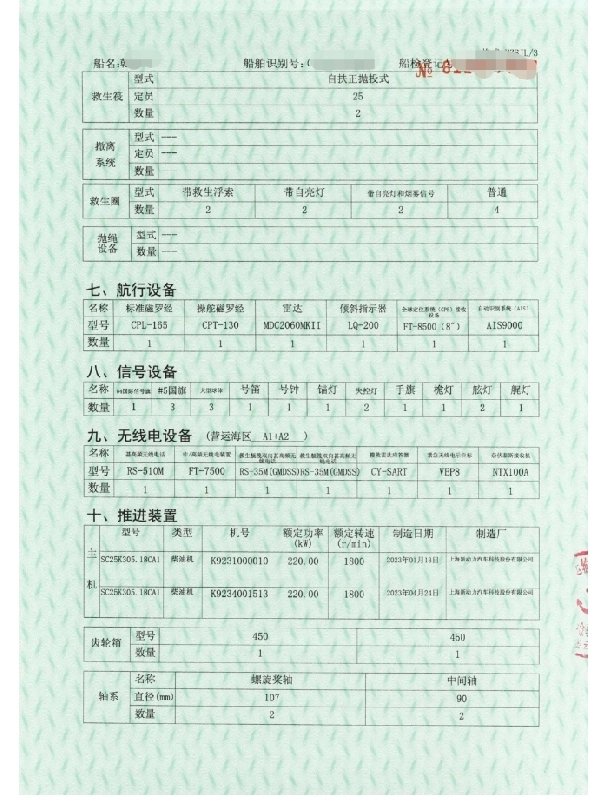 船名:
船舶识别号:
船检登
№
救生筏 型式 自扶正抛投式
定员 25
数量 2
撤离系统 型式 ---
定员 ---
数量
救生圈 型式 带救生浮索 带自亮灯 带自亮灯和烟雾信号 普通
数量 2 2 2 4
抛绳设备 型式 ---
数量 ---
七、航行设备
名称 标准磁罗经 操舵磁罗经 雷达 倾斜指示器 全球定位系统(GPS)接收设备 自动识别系统(AIS)
型号 CPL-165 CPT-130 MDC2060MKII LQ-200 FT-8500(8") AIS9000
数量 1 1 1 1 1 1
八、信号设备
名称 #5国旗 大型球体 号笛 号钟 锚灯 失控灯 手旗 桅灯 舷灯 艉灯
数量 1 3 3 1 1 1 2 1 1 2 1
九、无线电设备 (营运海区 A1+A2 )
名称 甚高频无线电话 中/高频无线电装置
型号 RS-510M FT-7500 RS-35M(GMDSS) RS-35M(GMDSS) CY-SART VEP8 NTX100A
数量 1 1 1 1 1 1 1
十、推进装置
主机 型号 类型 机号 额定功率(kW) 额定转速(r/min) 制造日期 制造厂
SC25K305.18CA1 柴油机 K9231000010 220.00 1800 上海新动力汽车科技股份有限公司
SC25K305.18CA1 柴油机 K9234001513 220.00 1800 2023年04月24日 上海新动力汽车科技股份有限公司
齿轮箱 型号 450 450
数量 1 1
轴系 名称 螺旋桨轴 中间轴
直径(mm) 107 90
数量 2 2